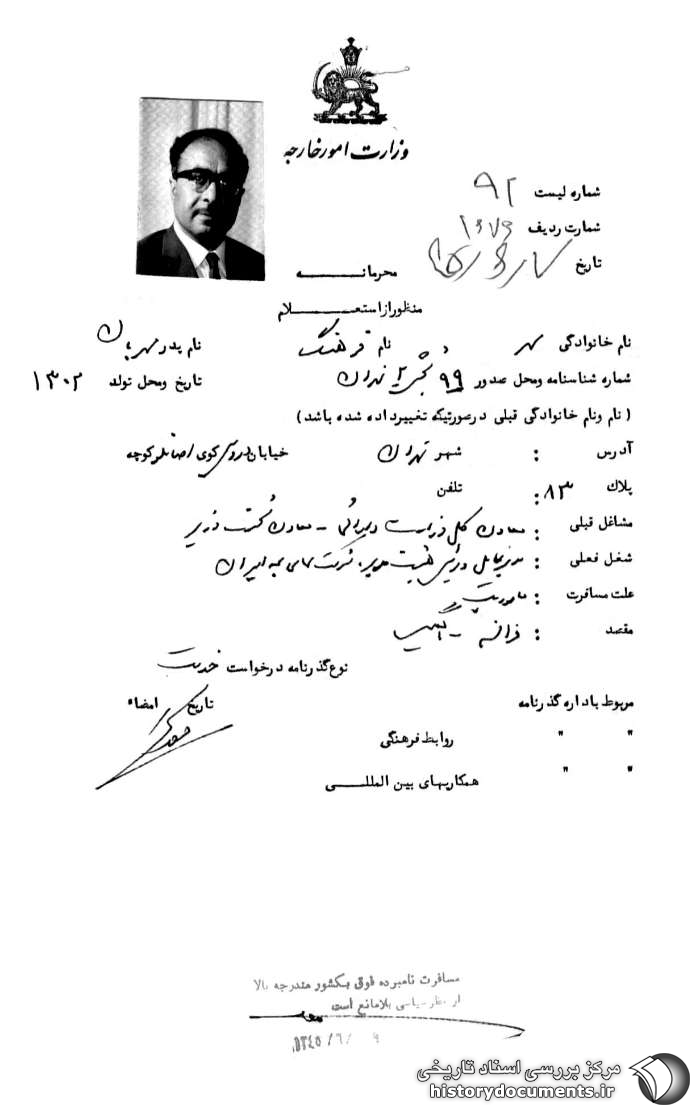 وزارت امور خارجه
شماره لیست ۹۲
شمارت ردیف ۱۶۷۶
تاریخ
محرمانه
منظور از استعلام
نام خانوادگی مهر نام فرهنگ نام پدر مهربان
شماره شناسنامه ومحل صدور ۹۹ تهران تاریخ ومحل تولد ۱۳۰۲
( نام ونام خانوادگی قبلی درصورتیکه تغییر داده شده باشد )
آدرس : شهر تهران خیابان دروس کوی احتشامیه کوچه
پلاك ۸۳ : تلفن
مشاغل قبلی : معاون کل وزارت دارائی - معاون نخست وزیر
شغل فعلی : مدیرعامل و رئیس هیئت مدیره شرکت بیمه ایران
علت مسافرت : ماموریت
مقصد : فرانسه - انگلیس
نوع گذرنامه درخواست خدمت
مربوط باداره گذرنامه تاریخ امضاء
" " روابط فرهنگی
" " همکاریهای بین المللی
مسافرت نامبرده فوق بکشور مندرجه بالا
از نظر سیاسی بلامانع است
۱۳۴۵/۶/۹
مرکز بررسی اسناد تاریخی
historydocuments.ir